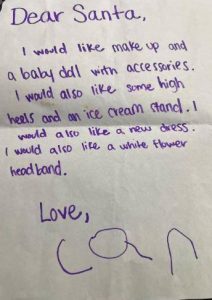 Dear Santa,
I would like make up and
a baby doll with accessories.
I would also like some high
heels and an ice cream stand. I
would also like a new dress.
I would also like a white flower
headband.
Love,